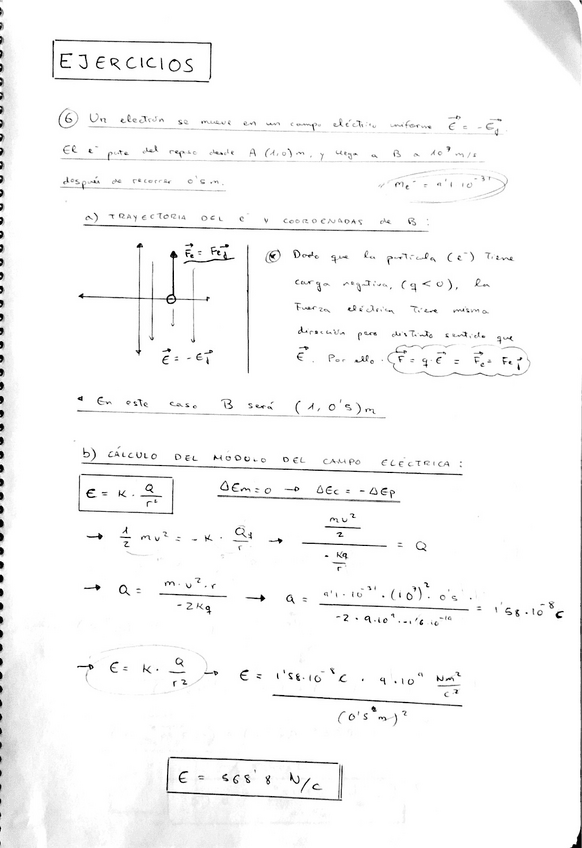 EJERCICIOS
⑥ Un electrón se mueve en un campo eléctrico uniforme E⃗ = -E j⃗.
El e⁻ parte del reposo desde A (1,0) m, y llega a B a 10⁷ m/s
después de recorrer 0's m.
me⁻ = 9'1·10⁻³¹
a) TRAYECTORIA DEL e⁻ Y COORDENADAS de B:
F⃗e = Fe j⃗
E⃗ = -E j⃗
Dado que la partícula (e⁻) tiene
carga negativa, (q < 0), la
Fuerza eléctrica tiene misma
dirección pero distinto sentido que
E⃗. Por ello. F⃗ = q·E⃗ = F⃗e = Fe j⃗
En este caso B será (1, 0's) m
b) CÁLCULO DEL MÓDULO DEL CAMPO ELÉCTRICA:
E = K · Q/r²   ΔEm = 0 → ΔEc = -ΔEp
→ 1/2 mv² = - K · Qq/r → (mv²/2)/(-Kq/r) = Q
→ Q = m·v²·r/-2Kq → Q = 9'1·10⁻³¹·(10⁷)²·0's/-2·9·10⁹·-1'6·10⁻¹⁹ = 1'58·10⁻⁸ C
→ E = K · Q/r² → E = 1'58·10⁻⁸ C · 9·10⁹ Nm²/C² / (0's m)²
E = 568'8 N/C